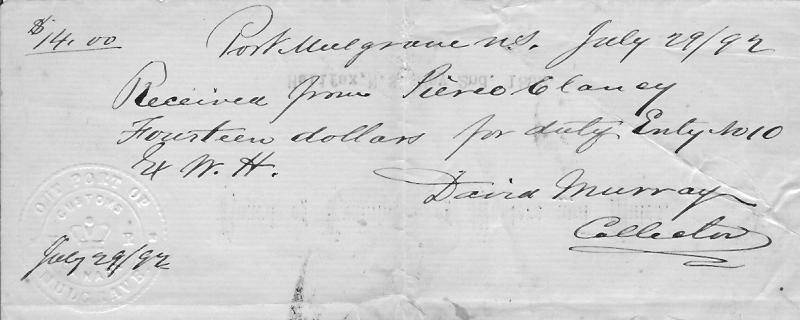 $14.00
Port Mulgrave N.S. July 29/92
Received from Pierce Clancy
Fourteen dollars for duty Enty No 10
Ex W. H.
David Murray
Collector
OUT PORT OF
CUSTOMS
MULGRAVE
July 29/92